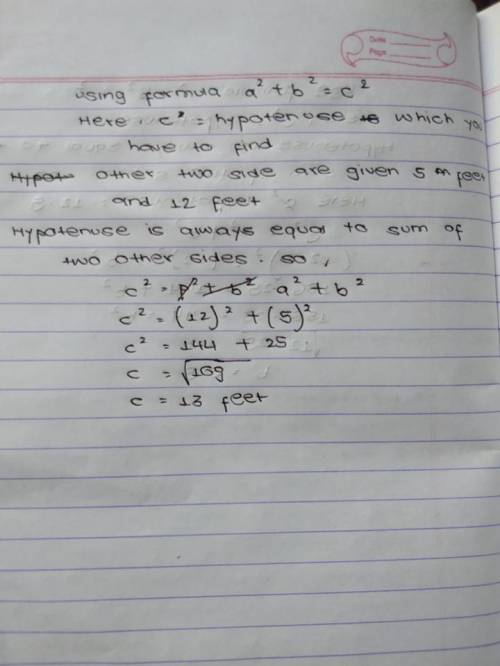 Date
Page
using formula a² + b² = c²
Here, c² = hypotenuse which you
have to find
other two side are given 5 feet
and 12 feet
Hypotenuse is always equal to sum of
two other sides. so,
c² = a² + b²
c² = (12)² + (5)²
c² = 144 + 25
c = √169
c = 13 feet